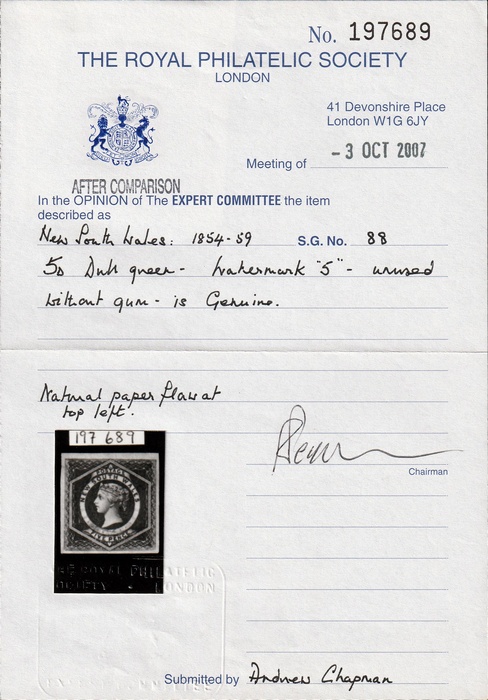 No. 197689
THE ROYAL PHILATELIC SOCIETY
LONDON
41 Devonshire Place
London W1G 6JY
Meeting of - 3 OCT 2007
AFTER COMPARISON
In the OPINION of The EXPERT COMMITTEE the item
described as
New South Wales: 1854-59 S.G. No. 88
5D Dull green - Watermark "5" - unused
without gum - is Genuine.
Natural paper flaw at
top left.
197 689
POSTAGE
NEW SOUTH WALES
FIVE PENCE
Chairman
THE ROYAL PHILATELIC
SOCIETY - LONDON
EXPERT COMMITTEE
Submitted by Andrew Chapman